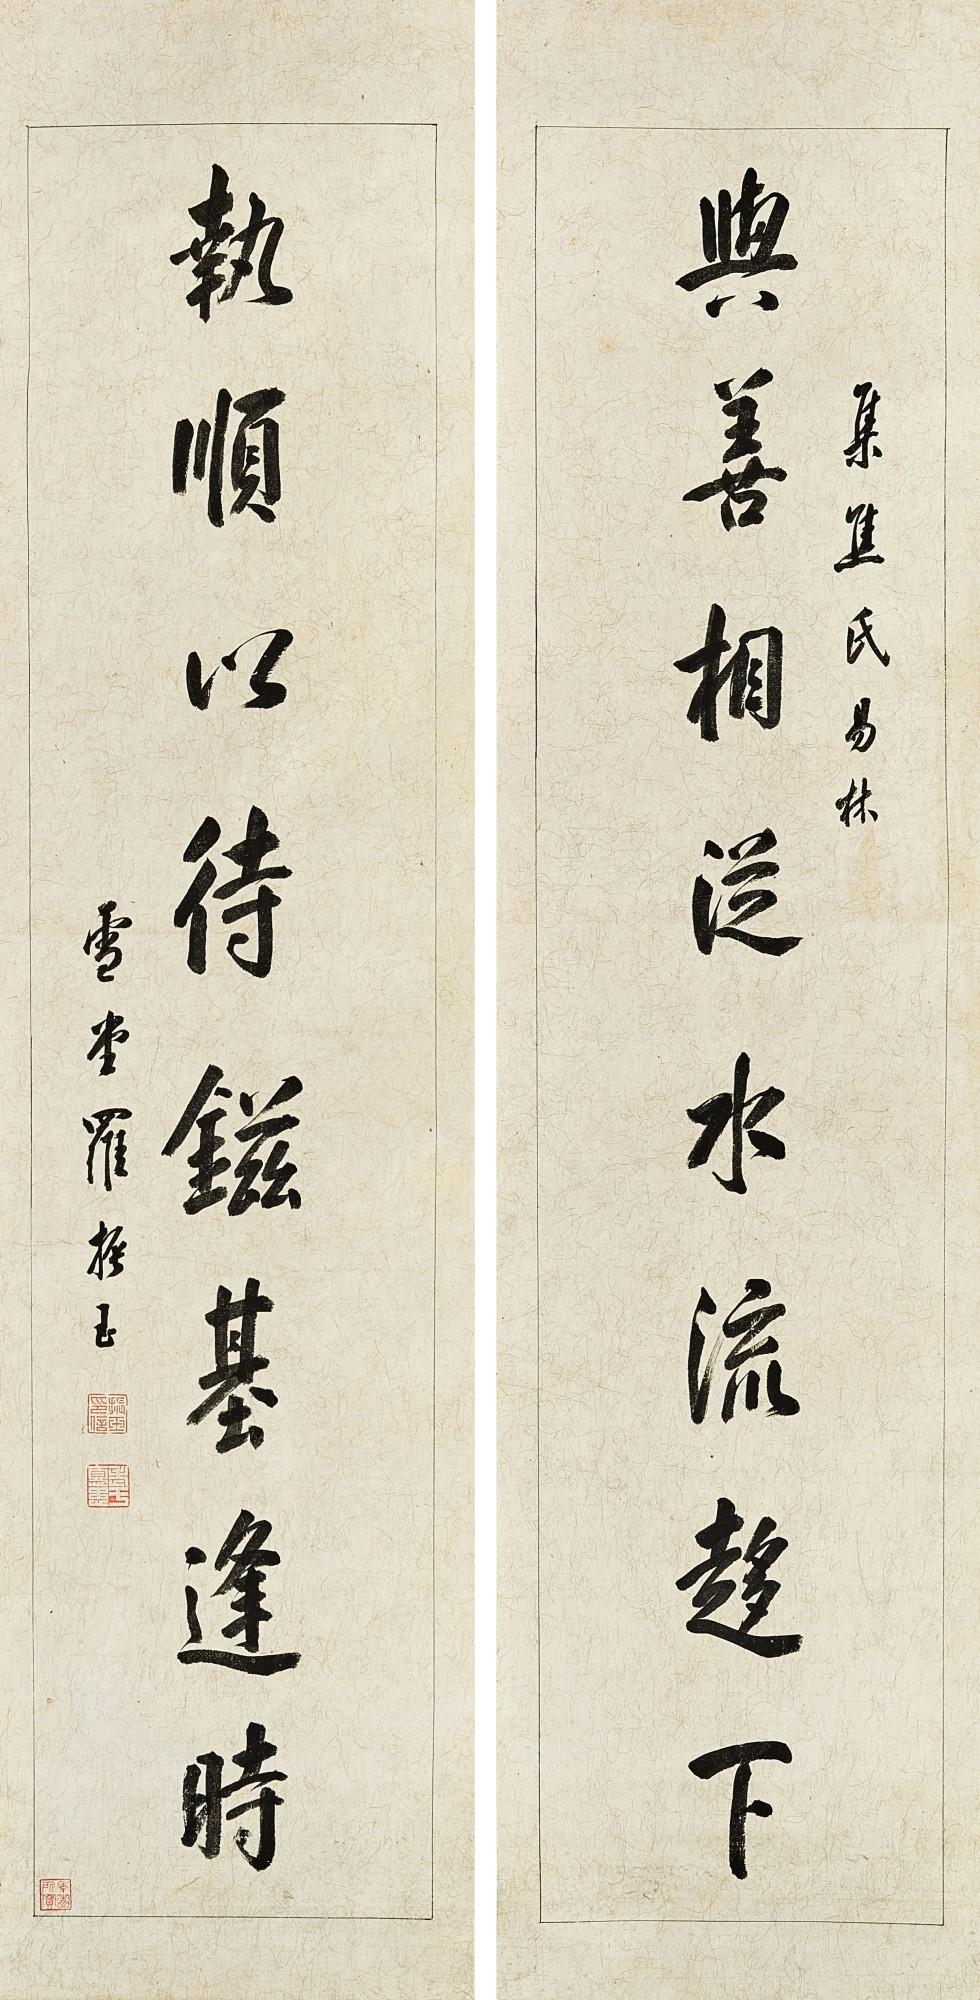 與善相從水流趍下
集焦氏易林
執順以待鎡基逢時
雪堂羅振玉
振玉印信